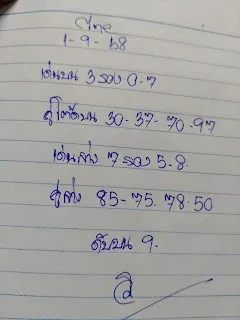 1-9-68
เด่นบน 3 รอง 0-7
คู่โต๊ดบน 30-37-70-97
เด่นล่าง 7 รอง 5-8
คู่ล่าง 85-75.78.50
ดับบน 9.